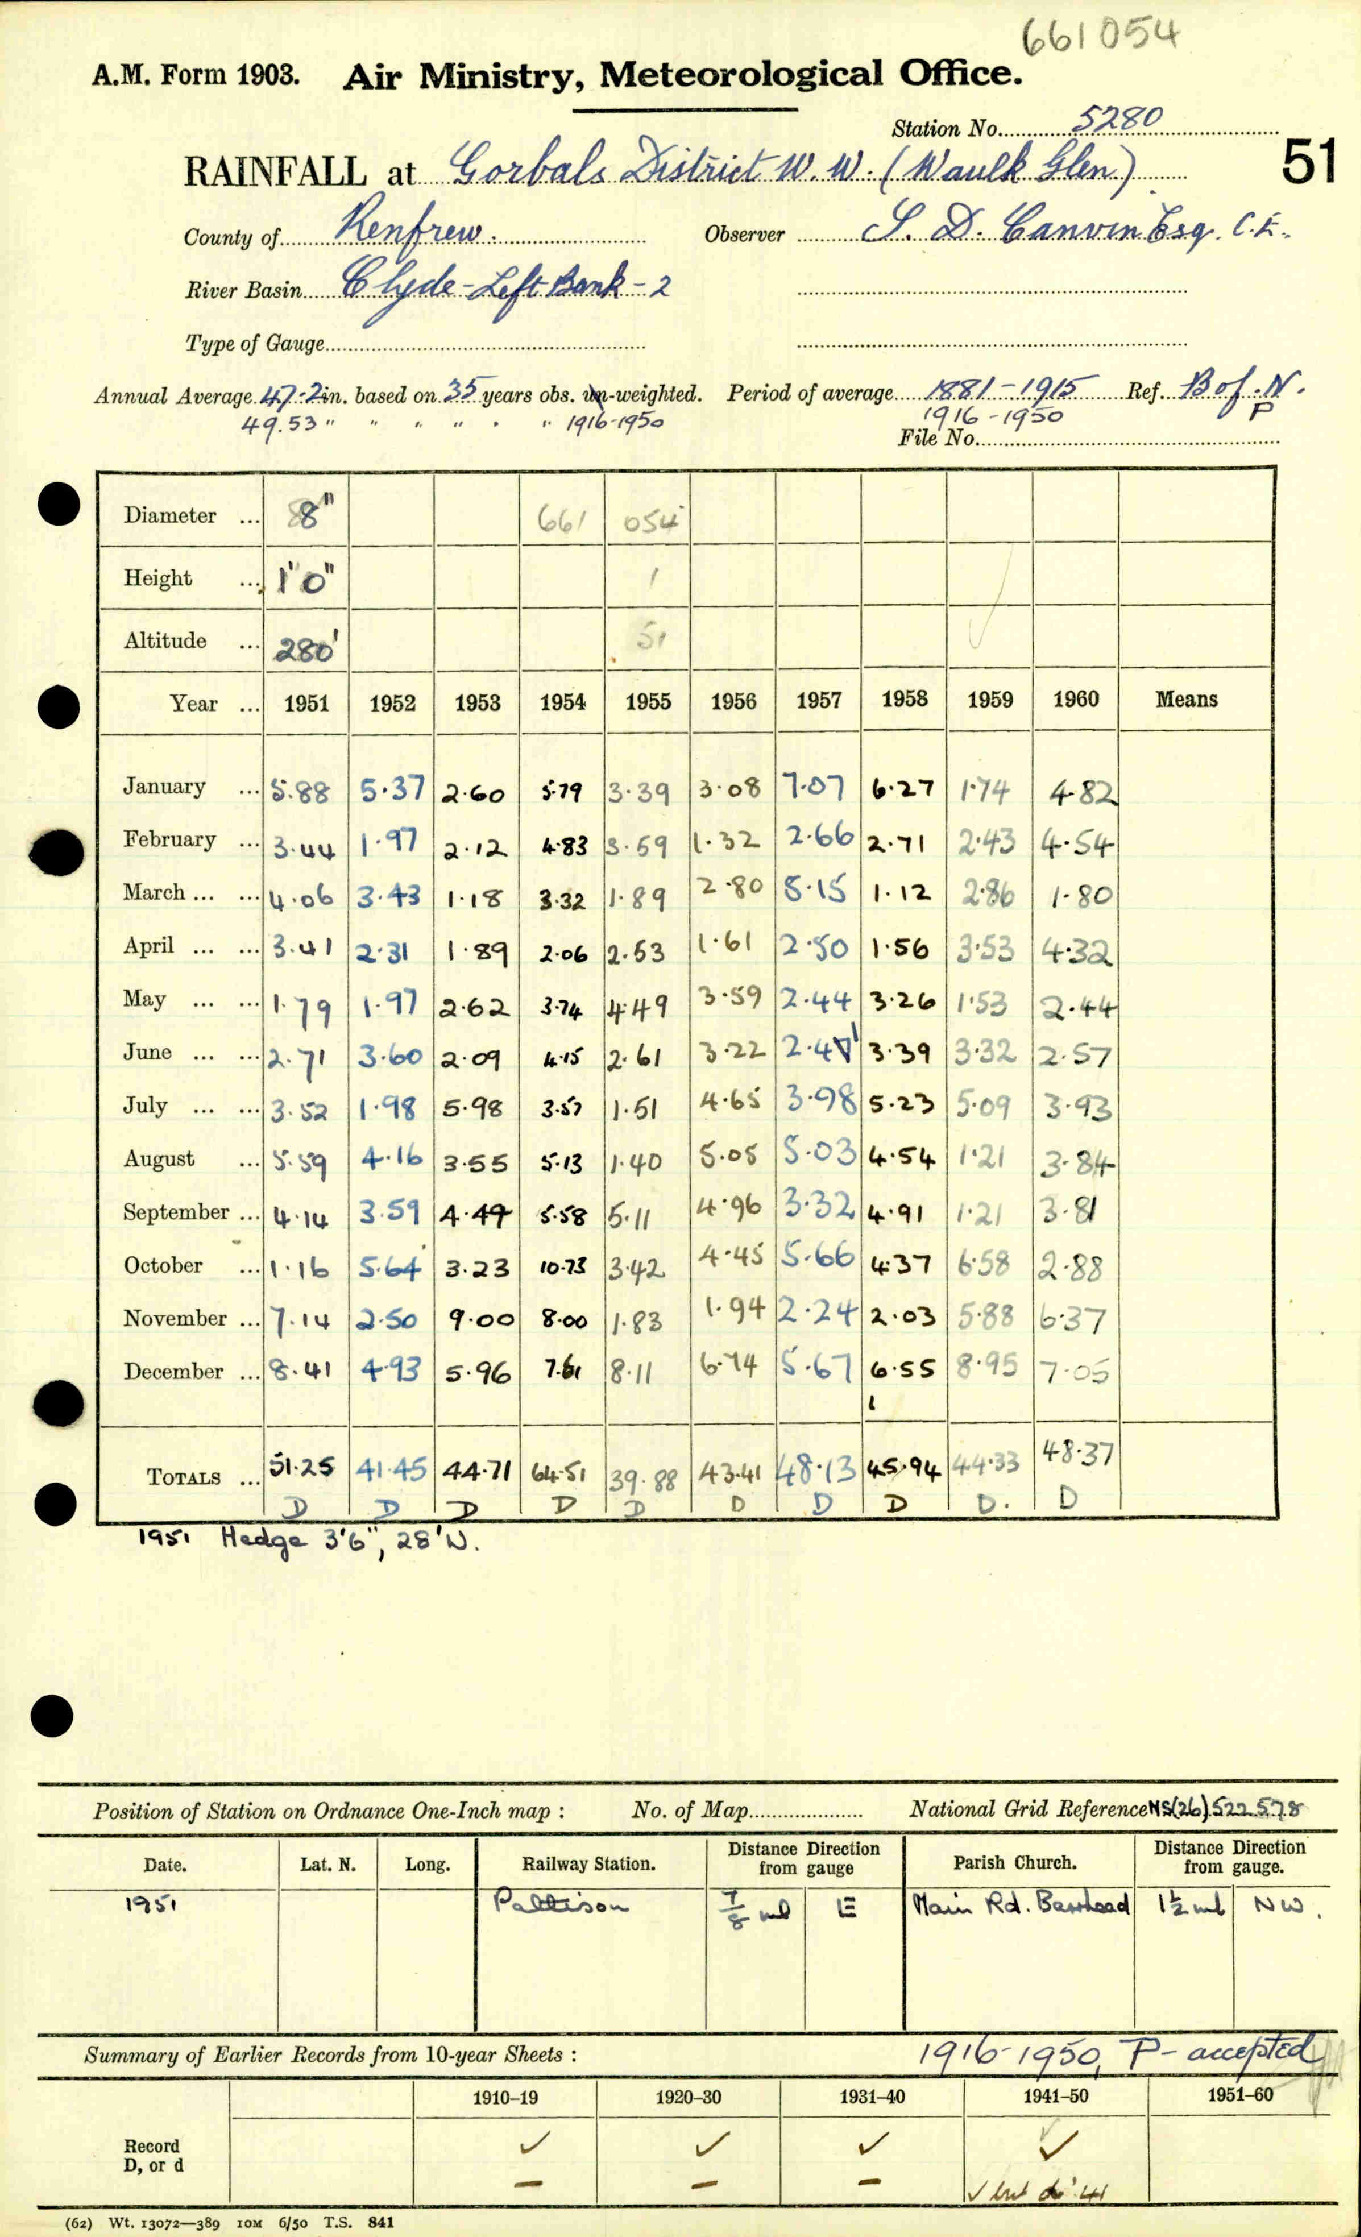 661054
A.M. Form 1903. Air Ministry, Meteorological Office.
Station No. 5280
RAINFALL at Gorbals District W. W. (Waulk Glen) 51
County of Renfrew. Observer S. D. Canvin Esq. C.E.
River Basin Clyde - Left Bank - 2
Type of Gauge
Annual Average 47.2 in. based on 35 years obs. un-weighted. Period of average 1881-1915 Ref. B of. N. P
49.53 " " " " " " 1916-1950 1916-1950
File No.
Diameter ... 8" 661 054
Height ... 1'0" 1
Altitude ... 280' 51
Year ... 1951 1952 1953 1954 1955 1956 1957 1958 1959 1960 Means
January ... 5.88 5.37 2.60 5.79 3.39 3.08 7.07 6.27 1.74 4.82
February ... 3.44 1.97 2.12 4.83 3.59 1.32 2.66 2.71 2.43 4.54
March ... ... 4.06 3.43 1.18 3.32 1.89 2.80 5.15 1.12 2.86 1.80
April ... ... 3.41 2.31 1.89 2.06 2.53 1.61 2.50 1.56 3.53 4.32
May ... ... 1.79 1.97 2.62 3.74 4.49 3.59 2.44 3.26 1.53 2.44
June ... ... 2.71 3.60 2.09 4.15 2.61 3.22 2.41 3.39 3.32 2.57
July ... ... 3.52 1.98 5.98 3.57 1.51 4.65 3.98 5.23 5.09 3.93
August ... 5.59 4.16 3.55 5.13 1.40 5.05 5.03 4.54 1.21 3.84
September ... 4.14 3.59 4.49 5.58 5.11 4.96 3.32 4.91 1.21 3.81
October ... 1.16 5.64 3.23 10.73 3.42 4.45 5.66 4.37 6.58 2.88
November ... 7.14 2.50 9.00 8.00 1.83 1.94 2.24 2.03 5.88 6.37
December ... 8.41 4.93 5.96 7.61 8.11 6.74 5.67 6.55 8.95 7.05
1
TOTALS ... 51.25 41.45 44.71 64.51 39.88 43.41 48.13 45.94 44.33 48.37
D D D D D D D D D. D
1951 Hedge 3'6", 28'N.
Position of Station on Ordnance One-Inch map : No. of Map National Grid Reference NS(26) 522578
Date. Lat. N. Long. Railway Station. Distance from gauge Direction Parish Church. Distance from gauge. Direction
1951 Pattison 7/8 ml E Main Rd. Barrhead 1½ ml NW.
Summary of Earlier Records from 10-year Sheets : 1916-1950, P - accepted
1910–19 1920–30 1931–40 1941–50 1951–60
Record ✓ ✓ ✓ ✓
D, or d – – –
(62) Wt. 13072—389 10M 6/50 T.S. 841